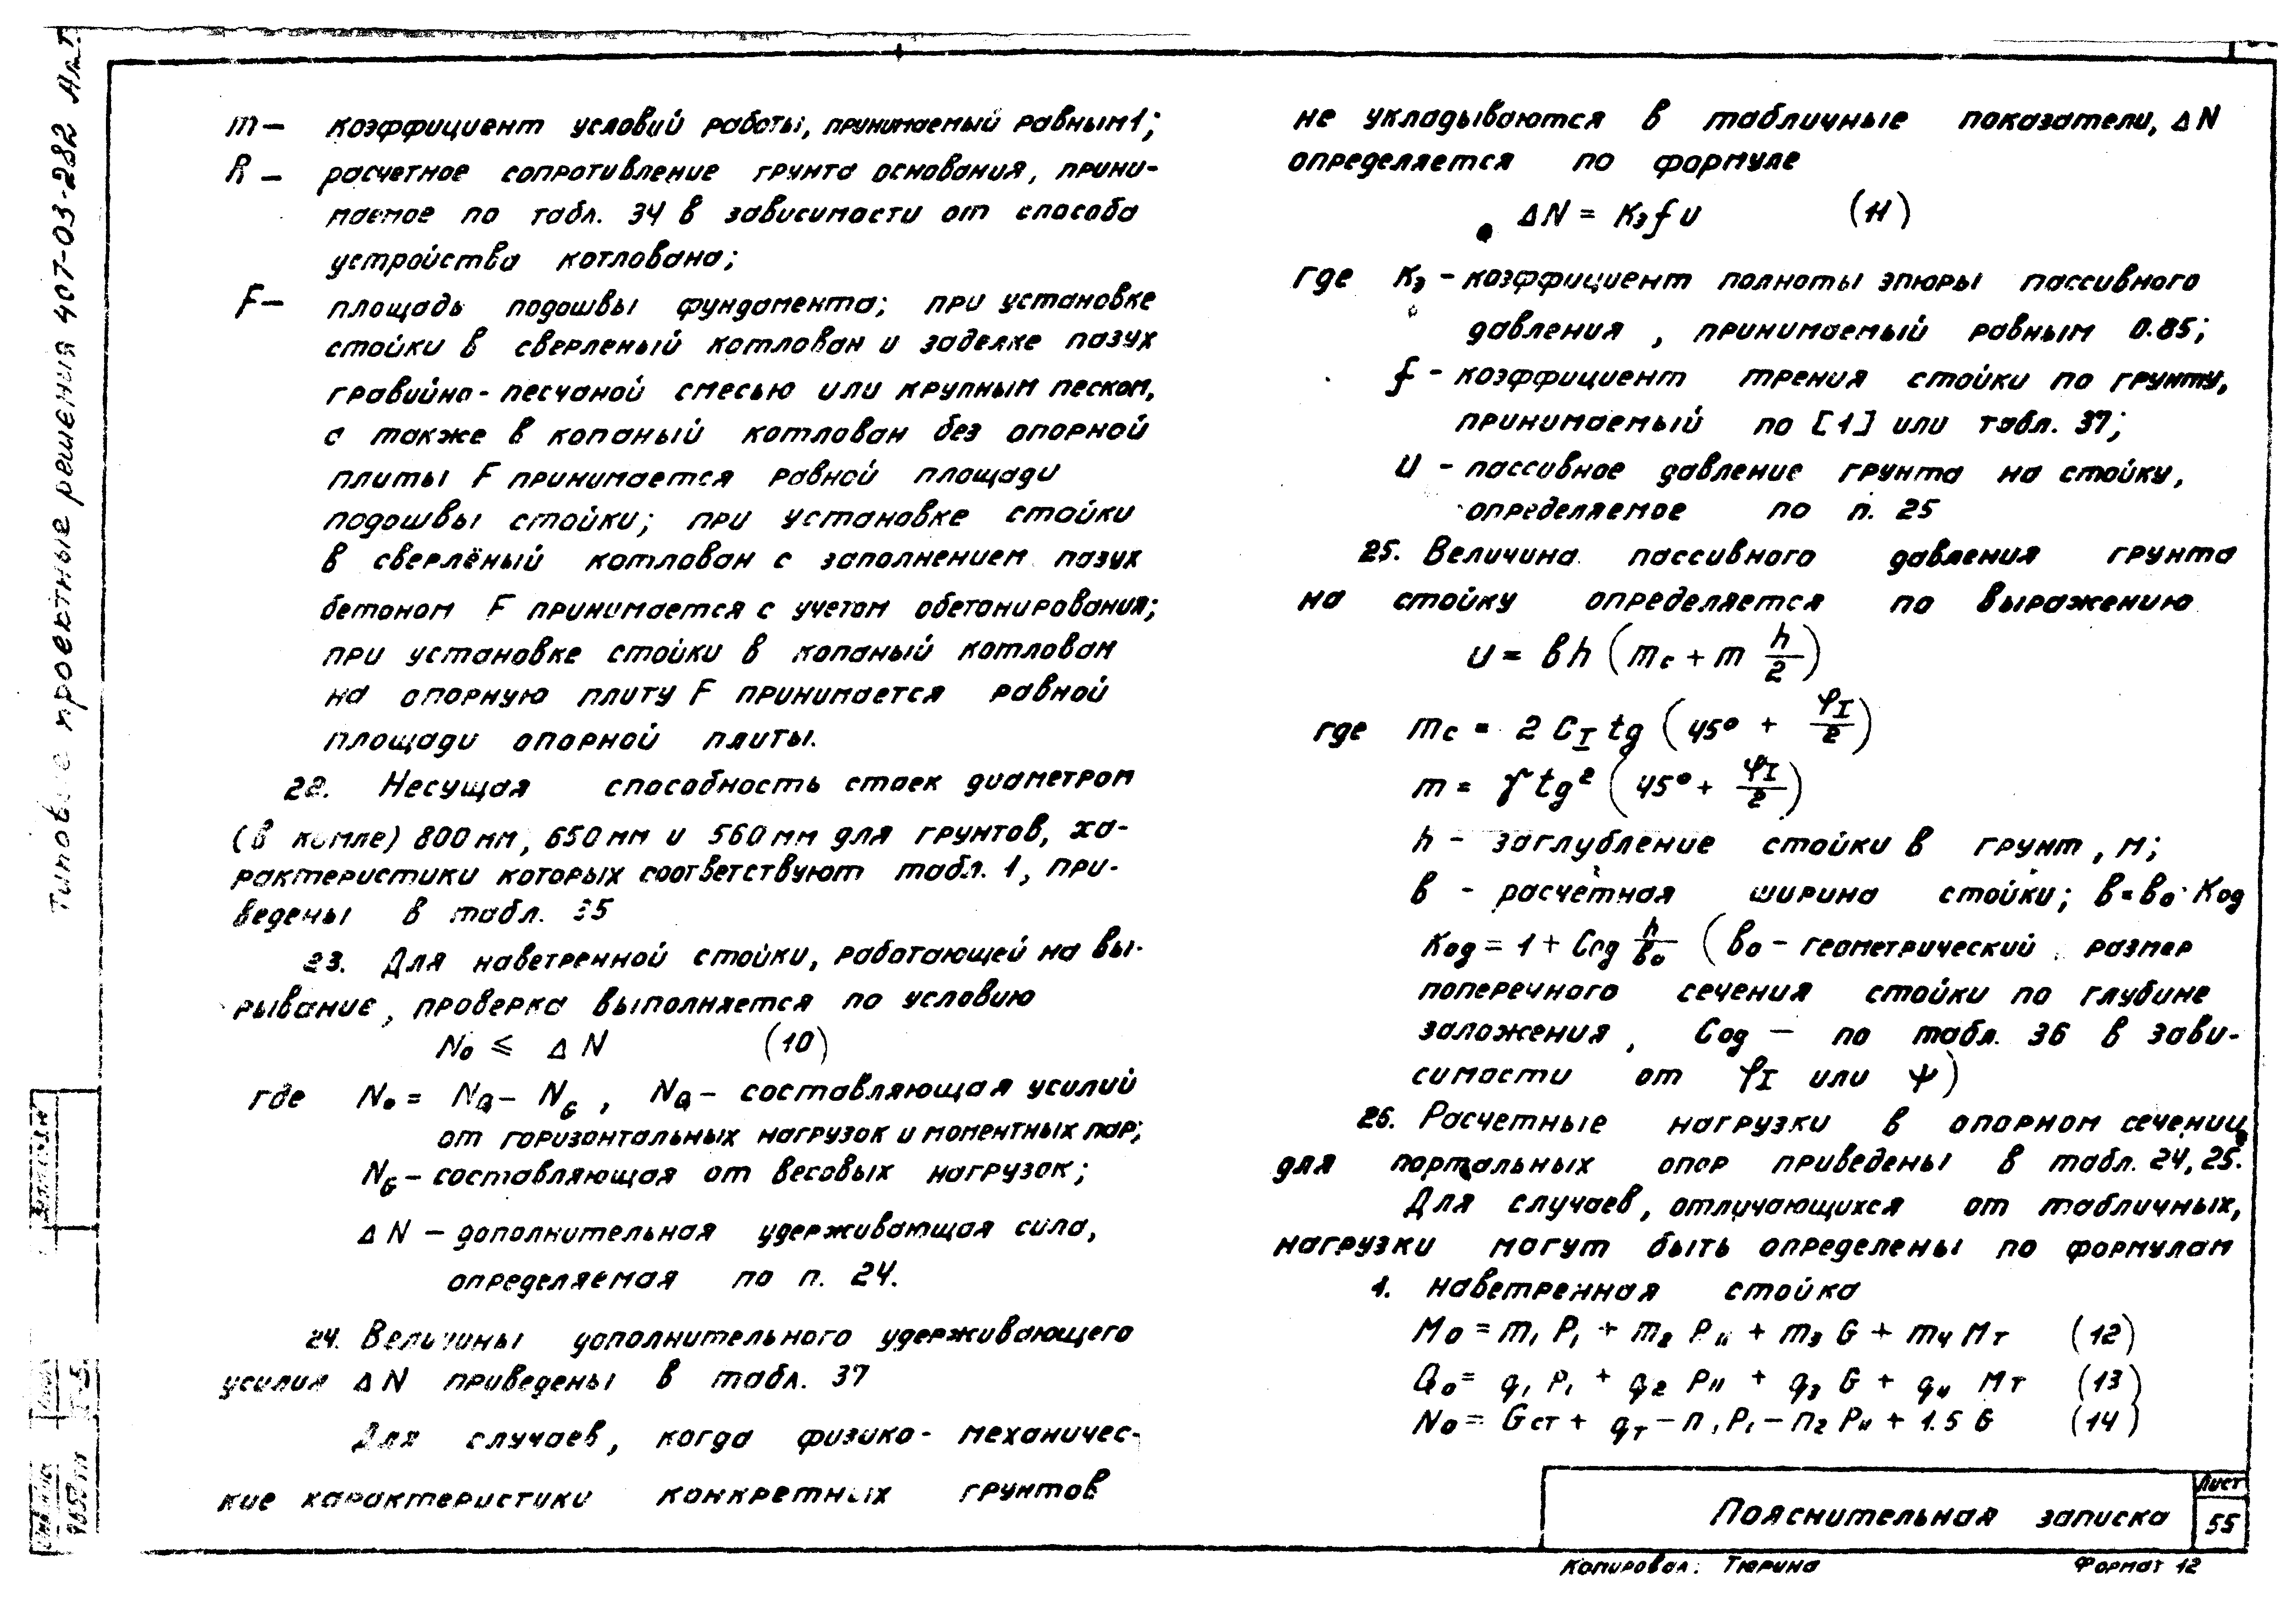 m — коэффициент условий работы, принимаемый равным 1;
R — расчетное сопротивление грунта основания, прини-
маемое по табл. 34 в зависимости от способа
устройства котлована;
F — площадь подошвы фундамента; при установке
стойки в сверленый котлован и заделке пазух
гравийно-песчаной смесью или крупным песком,
а также в копаный котлован без опорной
плиты F принимается равной площади
подошвы стойки; при установке стойки
в сверлёный котлован с заполнением пазух
бетоном F принимается с учетом обетонирования;
при установке стойки в копаный котлован
на опорную плиту F принимается равной
площади опорной плиты.
22. Несущая способность стоек диаметром
(в комле) 800 мм, 650 мм и 560 мм для грунтов, ха-
рактеристики которых соответствуют табл. 1, при-
ведены в табл. 35
23. Для наветренной стойки, работающей на вы-
рывание, проверка выполняется по условию
N₀ ≤ ΔN (10)
где N₀ = N_Q − N_G, N_Q − составляющая усилий
от горизонтальных нагрузок и моментных пар;
N_G — составляющая от весовых нагрузок;
ΔN — дополнительная удерживающая сила,
определяемая по п. 24.
24. Величины дополнительного удерживающего
усилия ΔN приведены в табл. 37
Для случаев, когда физико-механичес-
кие характеристики конкретных грунтов
не укладываются в табличные показатели, ΔN
определяется по формуле
ΔN = K₃ f u (11)
где K₃ — коэффициент полноты эпюры пассивного
давления, принимаемый равным 0.85;
f — коэффициент трения стойки по грунту,
принимаемый по [1] или табл. 37;
u — пассивное давление грунта на стойку,
определяемое по п. 25
25. Величина пассивного давления грунта
на стойку определяется по выражению
u = вh (mс + m h/2)
где mс = 2 C_I tg (45° + φ_I/2)
m = γ tg² (45° + φ_I/2)
h — заглубление стойки в грунт, м;
в — расчётная ширина стойки; в = в₀ · Код
Код = 1 + Сод h/в₀ (в₀ — геометрический размер
поперечного сечения стойки по глубине
заложения, Сод — по табл. 36 в зави-
симости от φ_I или ψ)
26. Расчетные нагрузки в опорном сечении
для портальных опор приведены в табл. 24, 25.
Для случаев, отличающихся от табличных,
нагрузки могут быть определены по формулам
1. наветренная стойка
M₀ = m₁ P₁ + m₂ P_II + m₃ G + m₄ Mт (12)
Q₀ = q₁ P₁ + q₂ P_II + q₃ G + q₄ Mт (13)
N₀ = Gст + qт − n₁P₁ − n₂ P_II + 1.5 G (14)
Пояснительная записка
Лист
55
Копировал: Тюрина Формат 12
Типовые проектные решения 407-03-282 Ал. I